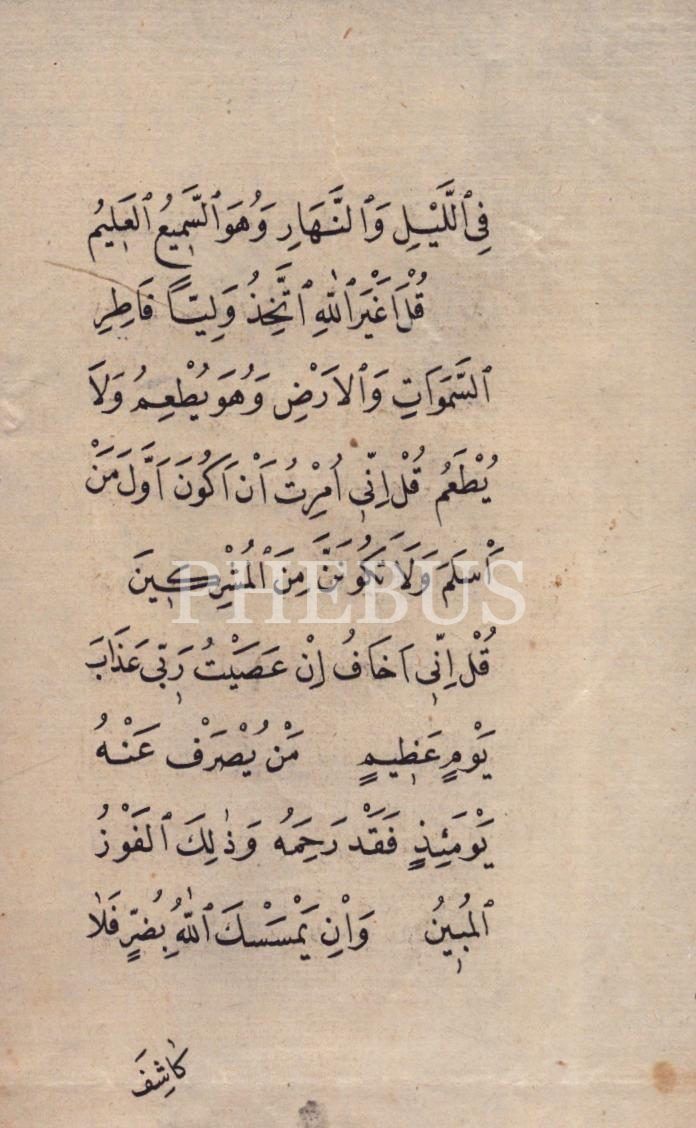 فِي ٱللَّيْلِ وَٱلنَّهَارِ وَهُوَ ٱلسَّمِيعُ ٱلعَلِيمُ
قُلْ اَغَيْرَ ٱللّٰهِ ٱتَّخِذُ وَلِيًّا فَاطِرِ
ٱلسَّمَوَاتِ وَٱلاَرْضِ وَهُوَ يُطْعِمُ وَلَا
يُطْعَمُ قُلْ اِنِّي اُمِرْتُ اَنْ اَكُونَ اَوَّلَ مَنْ
اَسْلَمَ وَلَا تَكُونَنَّ مِنَ ٱلمُشْرِكِينَ
PHEBUS
قُلْ اِنِّي اَخَافُ اِنْ عَصَيْتُ رَبِّي عَذَابَ
يَوْمٍ عَظِيمٍ مَنْ يُصْرَفْ عَنْهُ
يَوْمَئِذٍ فَقَدْ رَحِمَهُ وَذٰلِكَ ٱلفَوْزُ
ٱلمُبِينُ وَاِنْ يَمْسَسْكَ ٱللّٰهُ بِضُرٍّ فَلَا
كَاشِفَ